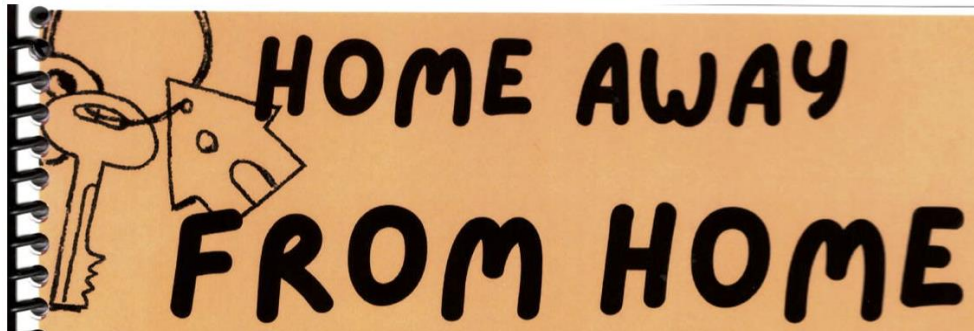 HOME AWAY
FROM HOME